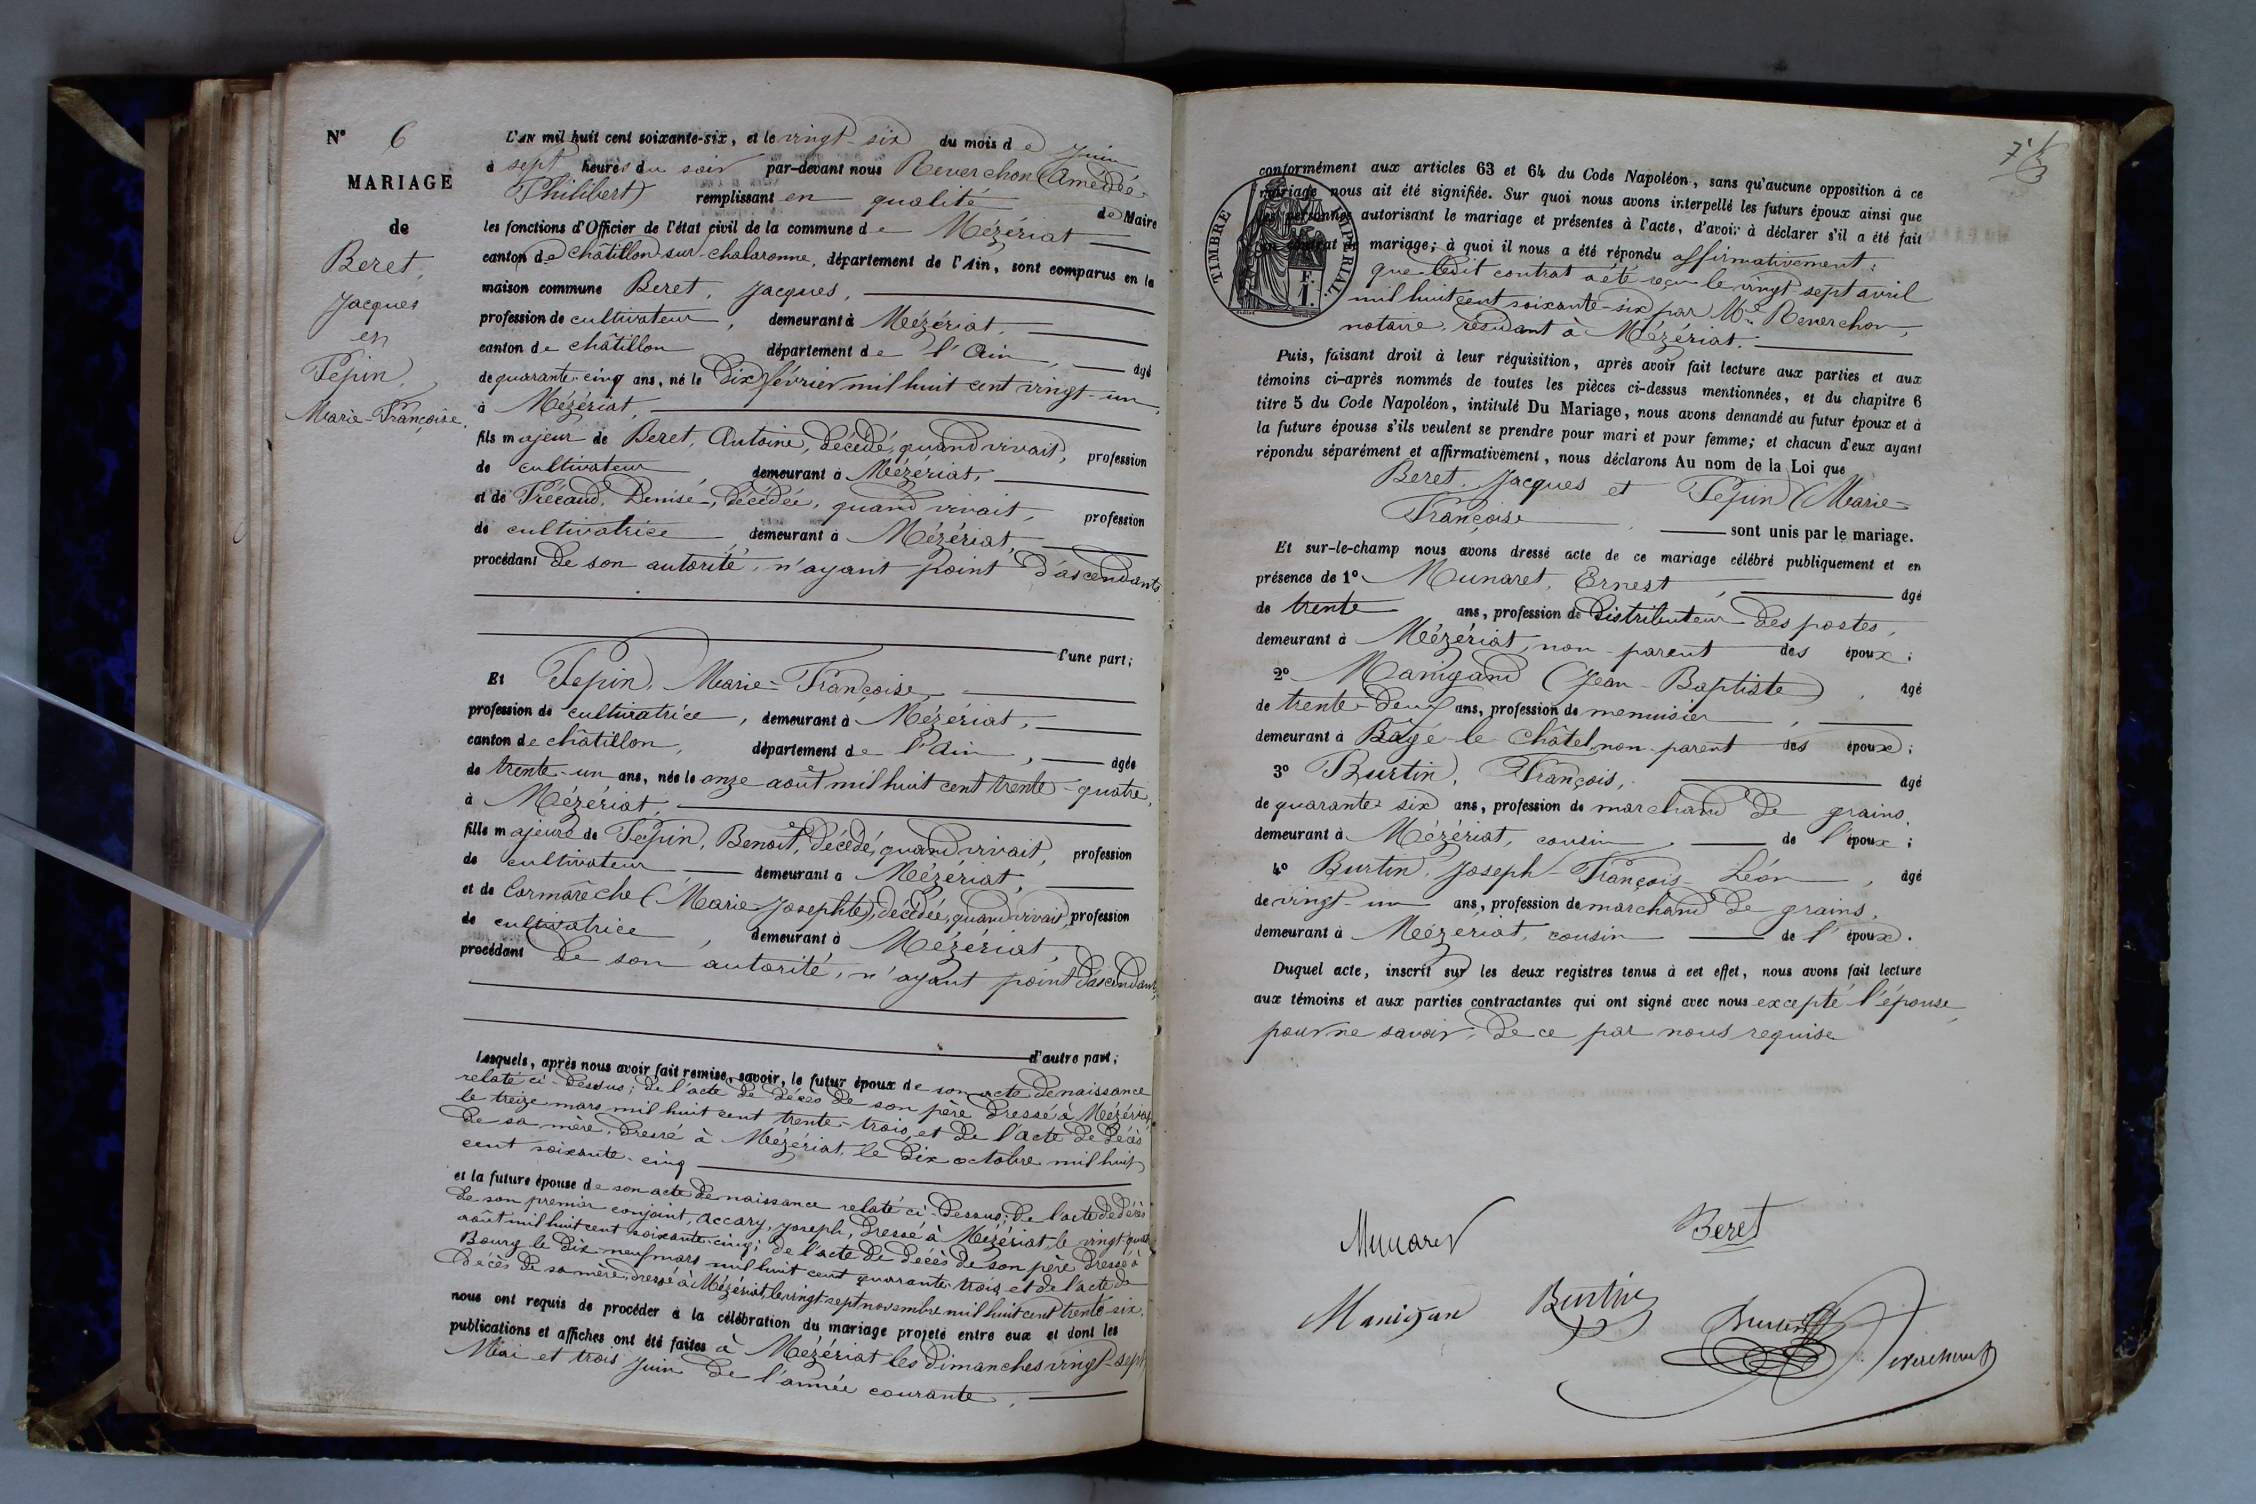 N° 6
MARIAGE
de
Beret,
Jacques
en
Pépin,
Marie-Françoise.
L'AN mil huit cent soixante-six, et le vingt-six du mois de Juin
à sept heures du soir par-devant nous Reverchon (Amédée-
Philibert) remplissant en qualité de Maire
les fonctions d'Officier de l'état civil de la commune de Mézériat
canton de châtillon-sur-chalaronne, département de l'Ain, sont comparus en la
maison commune Beret, Jacques,
profession de cultivateur, demeurant à Mézériat,
canton de châtillon département de l'Ain, âgé
de quarante-cinq ans, né le Dix février mil huit cent vingt-un,
à Mézériat,
fils majeur de Beret, Antoine, décédé, quand vivait, profession
de cultivateur demeurant à Mézériat,
et de Précaud, Denise, décédée, quand vivait, profession
de cultivatrice, demeurant à Mézériat,
procédant de son autorité, n'ayant point d'ascendants.
l'une part;
Et Pépin, Marie-Françoise,
profession de cultivatrice, demeurant à Mézériat,
canton de châtillon, département de l'Ain, âgée
de trente-un ans, née le onze août mil huit cent trente-quatre,
à Mézériat,
fille majeure de Pépin, Benoît, décédé, quand vivait, profession
de cultivateur, demeurant à Mézériat,
et de Cormarèche (Marie Josephte), décédée, quand vivait, profession
de cultivatrice, demeurant à Mézériat,
procédant de son autorité, n'ayant point d'ascendants,
d'autre part;
Lesquels, après nous avoir fait remise, savoir, le futur époux de son acte de naissance
relaté ci-dessus; de l'acte de décès de son père dressé à Mézériat,
le treize mars mil huit cent trente-trois, et de l'acte de décès
de sa mère, dressé à Mézériat, le dix octobre mil huit
cent soixante-cinq
et la future épouse de son acte de naissance relaté ci-dessus; de l'acte de décès
de son premier conjoint, Accary, Joseph, dressé à Mézériat, le vingt-quatre
août mil huit cent soixante-cinq; de l'acte de décès de son père dressé à
Bourg le dix-neuf mars mil huit cent quarante-trois, et de l'acte de
décès de sa mère, dressé à Mézériat, le vingt-sept novembre mil huit cent trente-six,
nous ont requis de procéder à la célébration du mariage projeté entre eux et dont les
publications et affiches ont été faites à Mézériat les dimanches vingt-sept
Mai et trois Juin de l'année courante,
conformément aux articles 63 et 64 du Code Napoléon, sans qu'aucune opposition à ce
mariage nous ait été signifiée. Sur quoi nous avons interpellé les futurs époux ainsi que
les personnes autorisant le mariage et présentes à l'acte, d'avoir à déclarer s'il a été fait
un contrat de mariage; à quoi il nous a été répondu affirmativement:
TIMBRE IMPÉRIAL.
E. I.
que ledit contrat a été reçu le vingt-sept avril
mil huit cent soixante-six par Me Reverchon,
notaire, résidant à Mézériat.
Puis, faisant droit à leur réquisition, après avoir fait lecture aux parties et aux
témoins ci-après nommés de toutes les pièces ci-dessus mentionnées, et du chapitre 6
titre 5 du Code Napoléon, intitulé Du Mariage, nous avons demandé au futur époux et à
la future épouse s'ils veulent se prendre pour mari et pour femme; et chacun d'eux ayant
répondu séparément et affirmativement, nous déclarons Au nom de la Loi que
Beret, Jacques et Pépin (Marie-
Françoise sont unis par le mariage.
Et sur-le-champ nous avons dressé acte de ce mariage célébré publiquement et en
présence de 1° Munaret, Ernest, âgé
de trente ans, profession de distributeur des postes,
demeurant à Mézériat, non-parent des époux;
2° Manigand (Jean-Baptiste), âgé
de trente-deux ans, profession de menuisier,
demeurant à Bâgé-le-Châtel, non-parent des époux;
3° Burtin, François, âgé
de quarante-six ans, profession de marchand de grains,
demeurant à Mézériat, cousin de l'époux;
4° Burtin, Joseph-François-Léon, âgé
de vingt-un ans, profession de marchand de grains,
demeurant à Mézériat, cousin de l'époux.
Duquel acte, inscrit sur les deux registres tenus à cet effet, nous avons fait lecture
aux témoins et aux parties contractantes qui ont signé avec nous excepté l'épouse,
pour ne savoir, de ce par nous requise
Munaret
Beret
Manigan
Burtin
Burtin
Reverchon